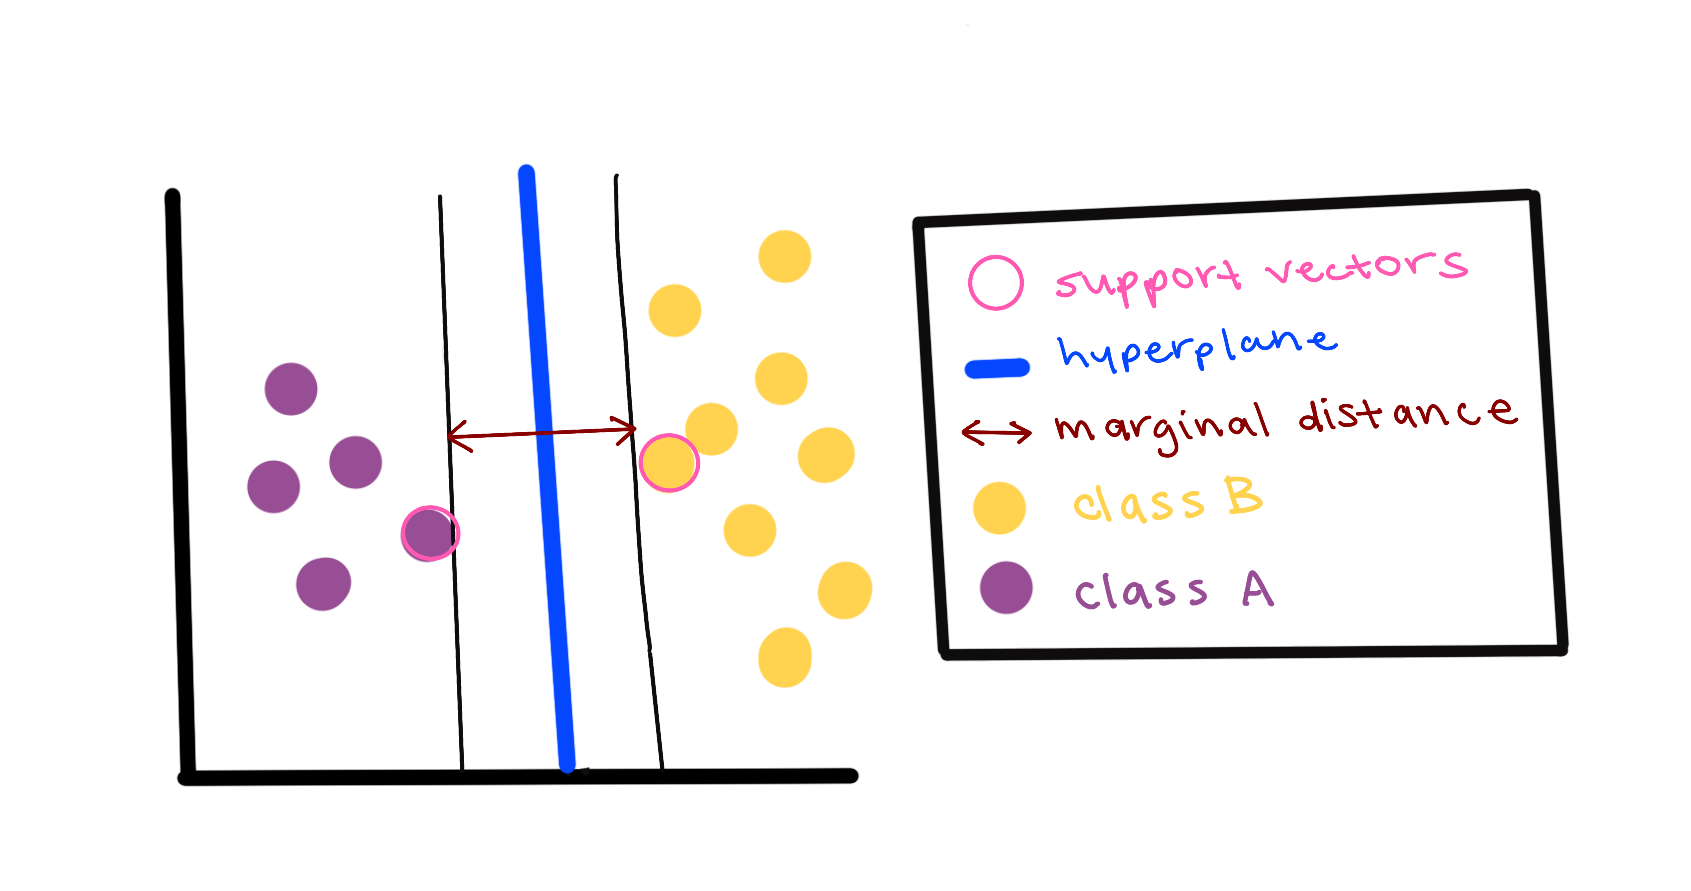 support vectors
hyperplane
marginal distance
class B
class A